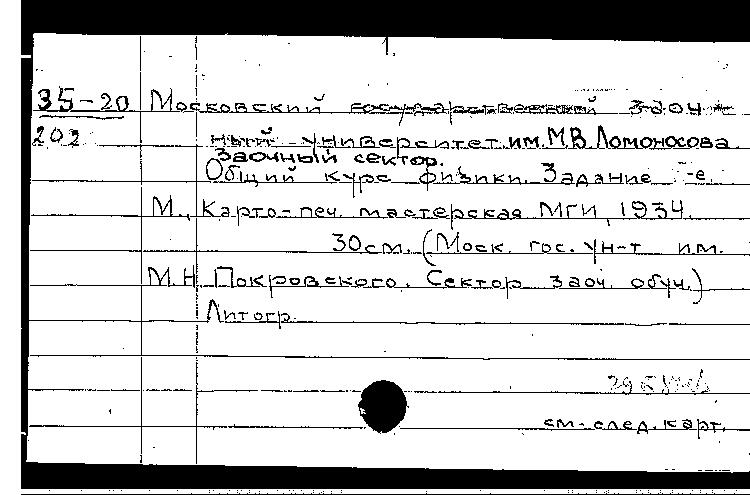 1.
35-20 Московский государственный заоч-
202 ный университет им. М.В. Ломоносова.
Заочный сектор.
Общий курс физики. Задание -е.
М., Карто-печ. мастерская МГИ, 1934.
30см. (Моск. гос. ун-т им.
М.Н. Покровского. Сектор заоч. обуч.)
Литогр.
см. след. карт.